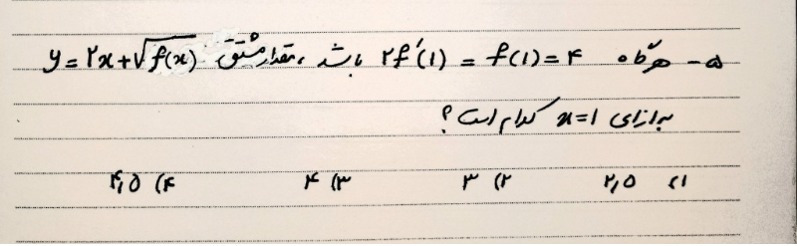 ۵- هرگاه ۲f′(۱) = f(۱) = ۴ باشد، مقدار مشتق y = ۲x + √f(x)
به ازای x=۱ کدام است؟
۱) ۲٫۵ ۲) ۳ ۳) ۴ ۴) ۴٫۵